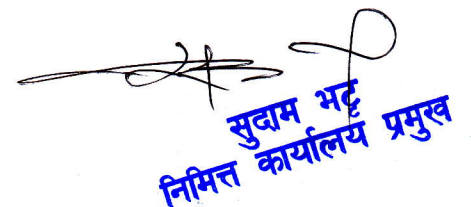 सुदाम भट्ट
निमित्त कार्यालय प्रमुख